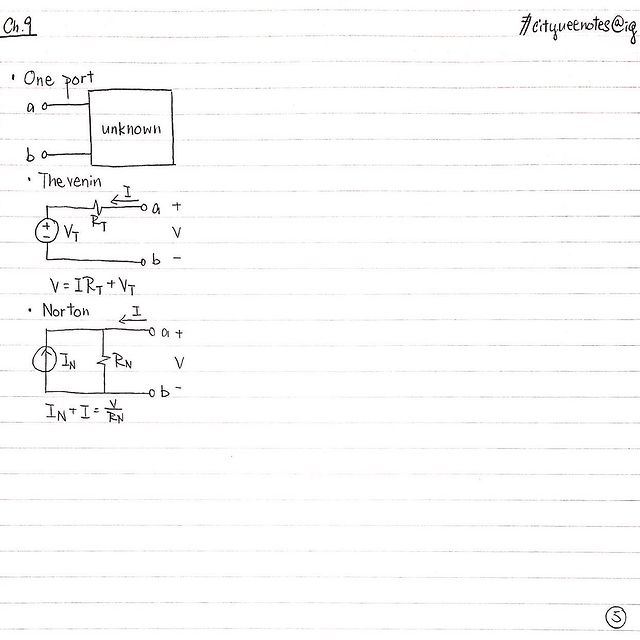 Ch.9
#cityueenotes@ig
• One port
a
unknown
b
• Thevenin
I
a +
R_T
V_T
V
b −
V = IR_T + V_T
• Norton
I
a +
I_N
R_N
V
b −
I_N + I = V/R_N
5